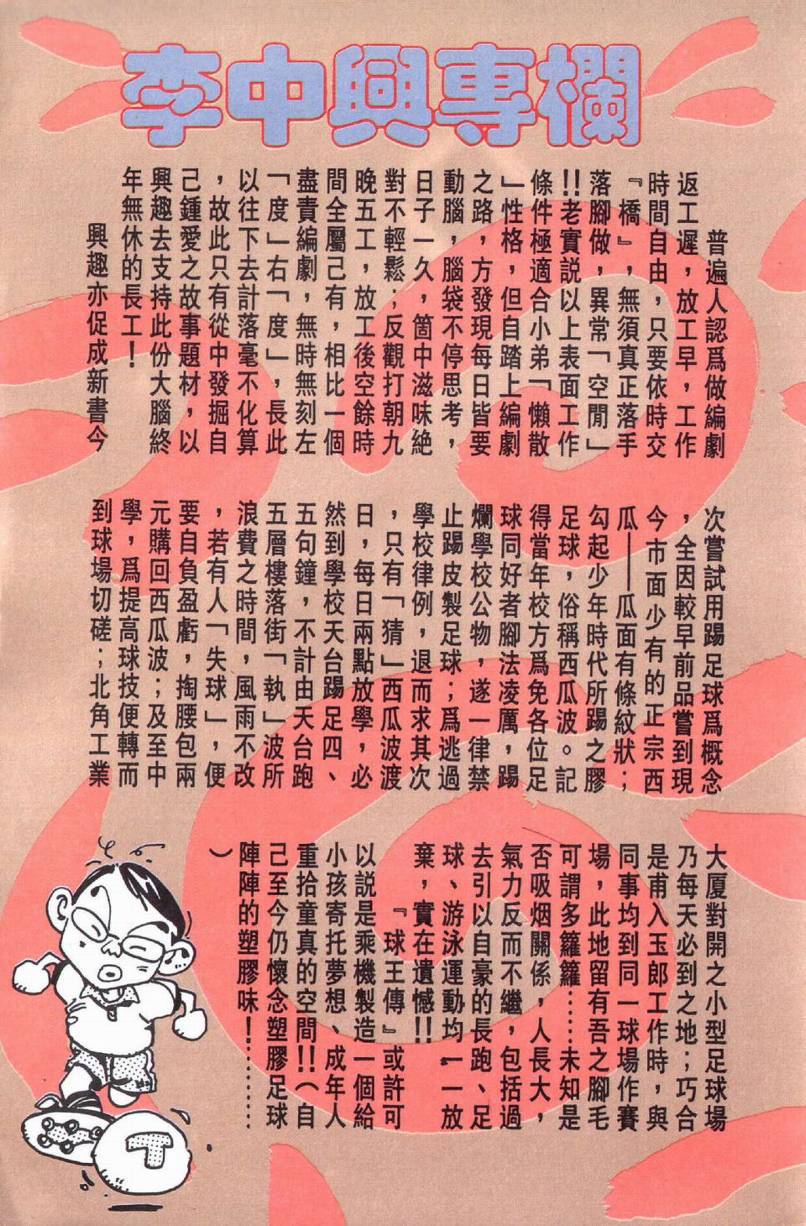 李中興專欄
普遍人認爲做編劇
返工遲，放工早，工作
時間自由，只要依時交
『橋』，無須真正落手
落腳做，異常「空閒」
!!老實説以上表面工作
條件極適合小弟「懶散
」性格，但自踏上編劇
之路，方發現每日皆要
動腦，腦袋不停思考，
日子一久，箇中滋味絶
對不輕鬆；反觀打朝九
晚五工，放工後空餘時
間全屬己有，相比一個
盡責編劇，無時無刻左
「度」右「度」，長此
以往下去計落毫不化算
，故此只有從中發掘自
己鍾愛之故事題材，以
興趣去支持此份大腦終
年無休的長工！
興趣亦促成新書今
次嘗試用踢足球爲概念
，全因較早前品嘗到現
今市面少有的正宗西
瓜——瓜面有條紋狀；
勾起少年時代所踢之膠
足球，俗稱西瓜波。記
得當年校方爲免各位足
球同好者腳法凌厲，踢
爛學校公物，遂一律禁
止踢皮製足球；爲逃過
學校律例，退而求其次
，只有「猜」西瓜波渡
日，每日兩點放學，必
然到學校天台踢足四、
五句鐘，不計由天台跑
五層樓落街「執」波所
浪費之時間，風雨不改
，若有人「失球」，便
要自負盈虧，掏腰包兩
元購回西瓜波；及至中
學，爲提高球技便轉而
到球場切磋；北角工業
大厦對開之小型足球場
乃每天必到之地；巧合
是甫入玉郎工作時，與
同事均到同一球場作賽
場，此地留有吾之腳毛
可謂多籮籮……未知是
否吸烟關係，人長大，
氣力反而不繼，包括過
去引以自豪的長跑、足
球、游泳運動均一一放
棄，實在遺憾!!
『球王傳』或許可
以説是乘機製造一個給
小孩寄托夢想、成年人
重拾童真的空間!!（自
己至今仍懷念塑膠足球
陣陣的塑膠味！………
）
T